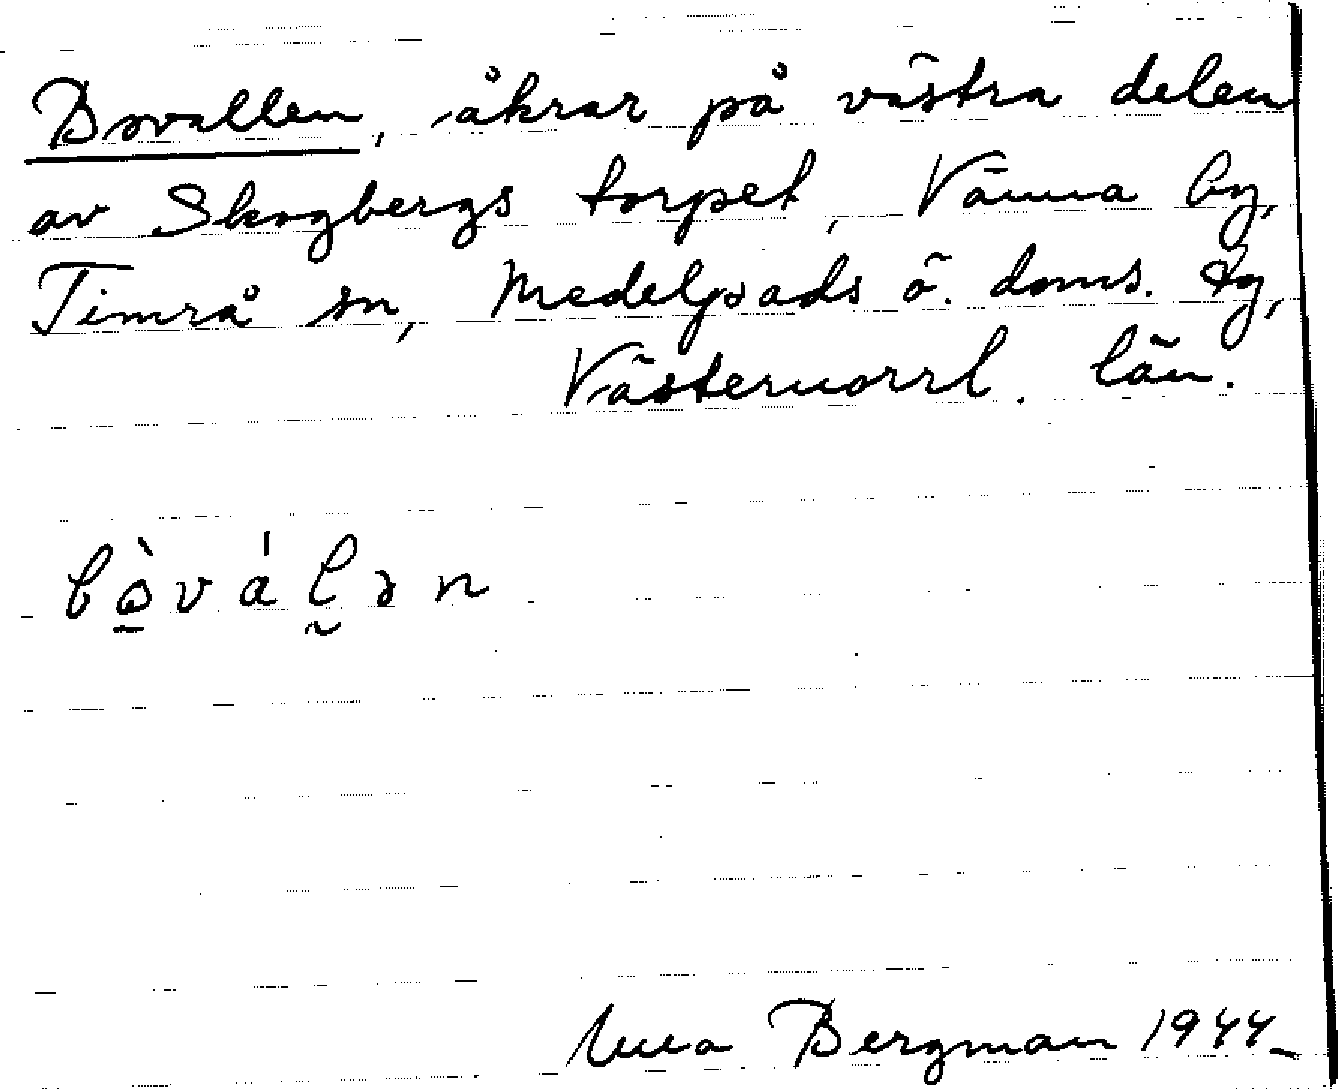 Bovallen, åkrar på västra delen
av Skogbergs torpet, Vänna by,
Timrå sn, Medelpads ö. doms. tg,
Västernorrl. län.
bò̠vál̰ən
Bergman 1944